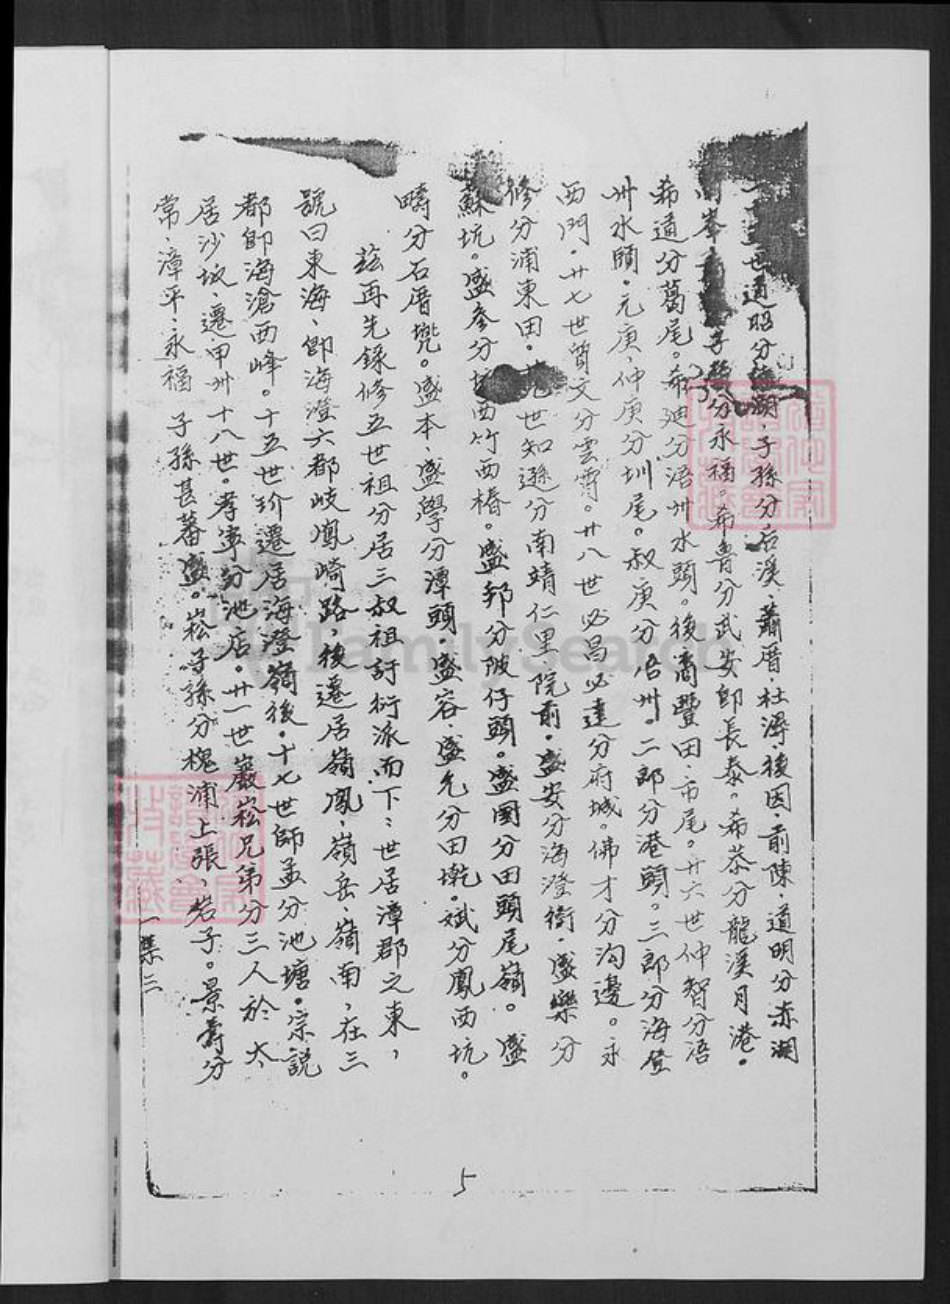 世道昭分 湖、子孫分后溪、蕭厝、杜潯、後因、前陳、道明分赤湖
峯 子孫分永福。希魯分武安即長泰。希恭分龍溪月港。
希道分葛尾。希迪分浯州水頭。後 豐田、市尾。廿六世仲智分浯
州水頭。元庚、仲庚分圳尾。叔庚分浯州。二郎分港頭。三郎分海登
西門。廿七世質文分雲霄。廿八世必昌必達分府城。佛才分沟邊。永
修分浦東田。 世知遜分南靖仁里院前。盛安分海澄街、盛樂分
蘇坑。盛參分 西竹西椿。盛邦分陂仔頭。盛國分田頭尾嶺。盛
疇分石厝 。盛本、盛學分潭頭。盛容、盛允分田墘。斌分鳳西坑。
茲再先錄修五世祖分居三叔祖訂衍派而下：世居漳郡之東，
號曰東海、即海澄六都岐鳳崎路，後遷居嶺鳳、嶺岳、嶺南，在三
都即海滄西峰。十五世珍遷居海澄嶺後。十七世師孟分池塘。宗說
居沙坂、遷甲州十八世。孝 分池店。廿一世巖崧兄弟分三人於太
常、漳平、永福子孫甚蕃盛。崧子孫分槐浦上張、岩子。景壽分
一集三
5
FamilySearch